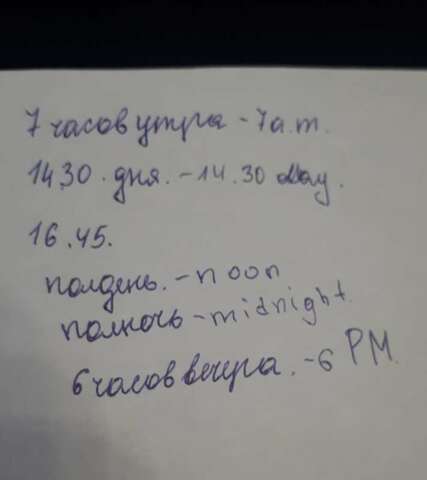 7 часов утра - 7 a.m.
14.30. дня. - 14.30 day.
16.45.
полдень. - noon
полночь - midnight.
6 часов вечера. - 6 PM.